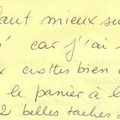 faut mieux su
car j'ai
crottes bien
le panier à l
2 belles taches